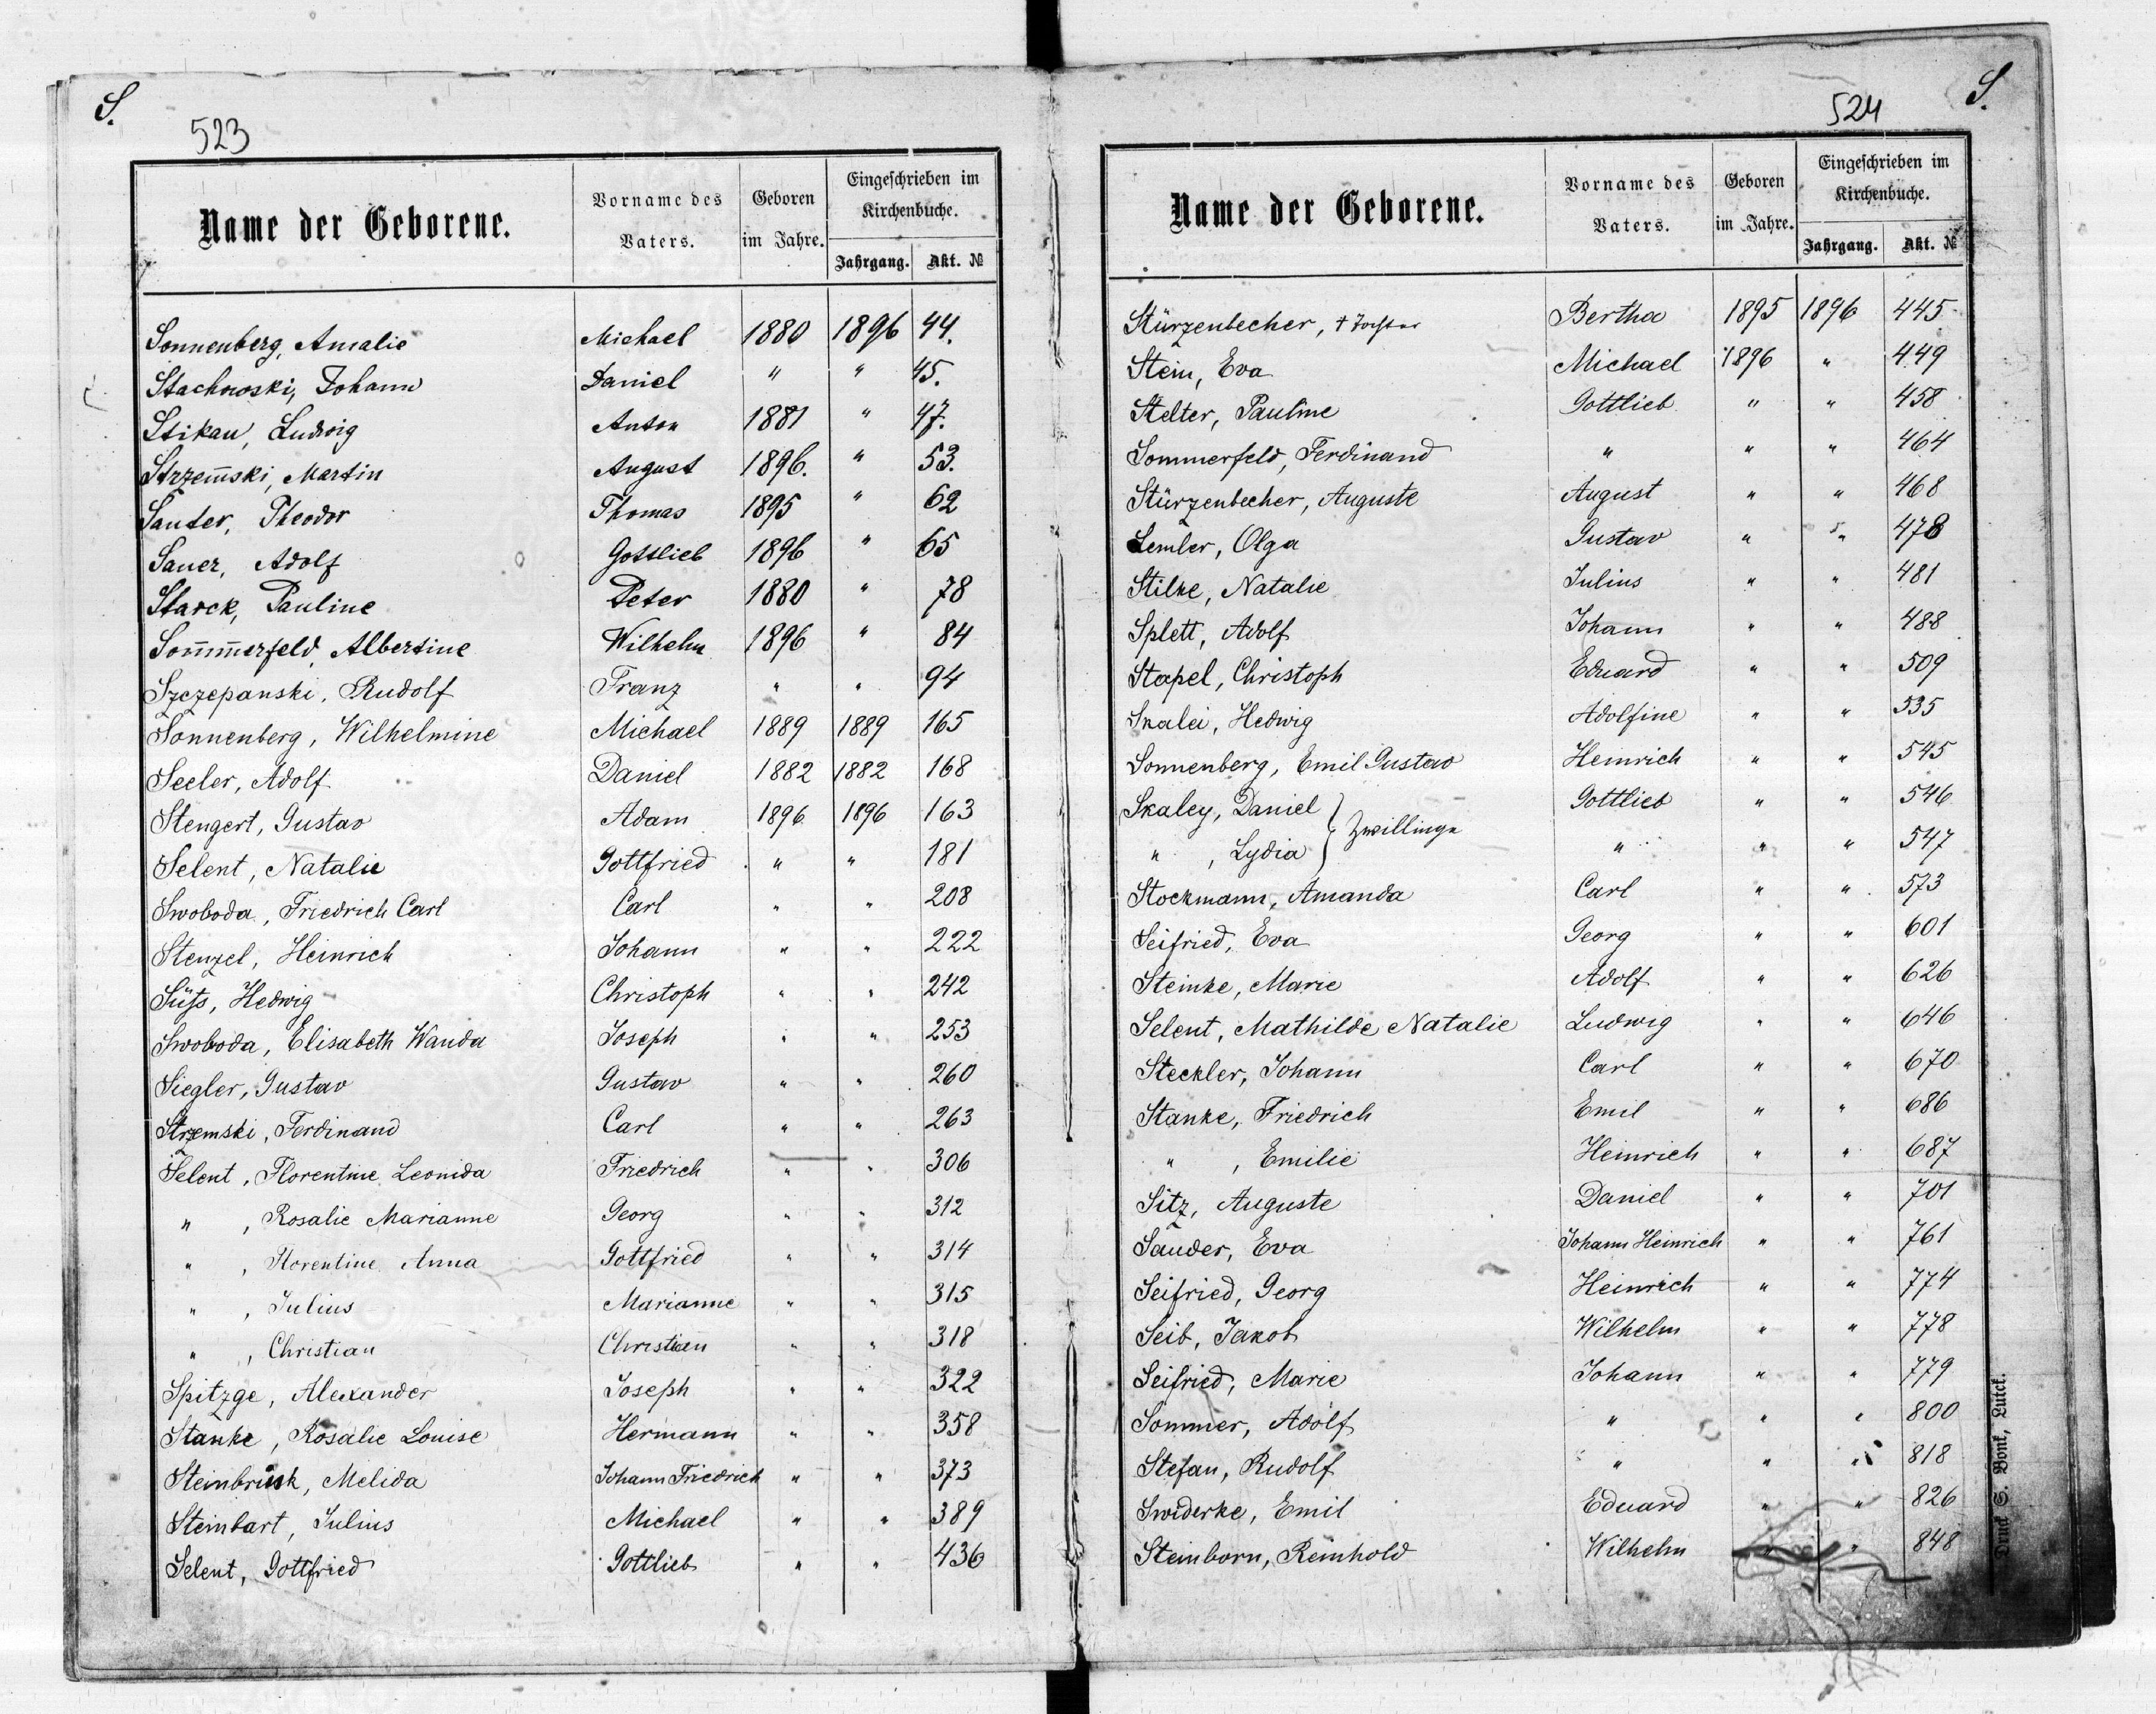 S.
523
Name der Geborene. Vorname des Vaters. Geboren im Jahre. Eingeschrieben im Kirchenbuche. Jahrgang. Akt. №
Sonnenberg, Amalie Michael 1880 1896 44.
Stachowski, Johann Daniel " " 45.
Stikau, Ludwig Anton 1881 " 47.
Strzem̄ski, Martin August 1896. " 53.
Sauter, Theodor Thomas 1895 " 62
Sauer, Adolf Gottlieb 1896 " 65
Starck, Pauline Peter 1880 " 78
Som̄m̄erfeld, Albertine Wilhelm 1896 " 84
Szczepanski, Rudolf Franz " " 94
Sonnenberg, Wilhelmine Michael 1889 1889 165
Seeler, Adolf Daniel 1882 1882 168
Stengert, Gustav Adam 1896 1896 163
Selent, Natalie Gottfried " " 181
Swoboda, Friedrich Carl Carl " " 208
Stenzel, Heinrich Johann " " 222
Süß, Hedwig Christoph " " 242
Swoboda, Elisabeth Wanda Joseph " " 253
Siegler, Gustav Gustav " " 260
Strzemski, Ferdinand Carl " " 263
Selent, Florentine Leonida Friedrich " " 306
" , Rosalie Marianne Georg " " 312
" , Florentine Anna Gottfried " " 314
" , Julius Marianne " " 315
" , Christian Christian " " 318
Spitzge, Alexander Joseph " " 322
Stanke, Rosalie Louise Hermann " " 358
Steinbrink, Melida Johann Friedrich " " 373
Steinbart, Julius Michael " " 389
Selent, Gottfried Gottlieb " " 436
S.
524
Name der Geborene. Vorname des Vaters. Geboren im Jahre. Eingeschrieben im Kirchenbuche. Jahrgang. Akt. №
Stürzenbecher, † Tochter Bertha 1895 1896 445
Stein, Eva Michael 1896 " 449
Stelter, Pauline Gottlieb " " 458
Sommerfeld, Ferdinand " " " 464
Stürzenbecher, Auguste August " " 468
Semler, Olga Gustav " " 478
Stilke, Natalie Julius " " 481
Splett, Adolf Johann " " 488
Stapel, Christoph Eduard " " 509
Skalei, Hedwig Adolfine " " 535
Sonnenberg, Emil Gustav Heinrich " " 545
Skaley, Daniel } Zwillinge Gottlieb " " 546
" , Lydia } " " " 547
Stockmann, Amanda Carl " " 573
Seifried, Eva Georg " " 601
Steinke, Marie Adolf " " 626
Selent, Mathilde Natalie Ludwig " " 646
Steckler, Johann Carl " " 670
Stanke, Friedrich Emil " " 686
" , Emilie Heinrich " " 687
Sitz, Auguste Daniel " " 701
Sauder, Eva Johann Heinrich " " 761
Seifried, Georg Heinrich " " 774
Seib, Jakob Wilhelm " " 778
Seifried, Marie Johann " " 779
Sommer, Adolf " " " 800
Stefan, Rudolf " " " 818
Swiderke, Emil Eduard " " 826
Steinborn, Reinhold Wilhelm " " 848
Druck S. Bonk, Luck.